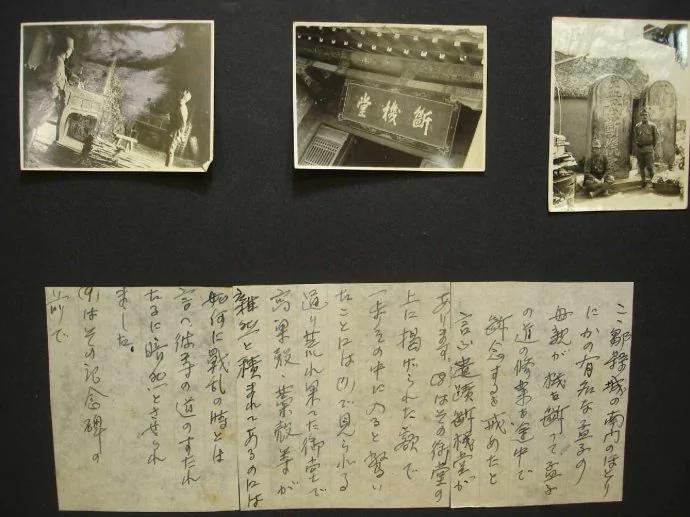 斷機堂
こゝ鄒縣城の南門のほとり
にかの有名な孟子の
母親が機を斷って孟子
の道の修業を途中で
斷念するを戒めたと
言ふ遺蹟斷機堂が
あります。(8)はその御堂の
上に掲げられた額で
一歩その中に入ると驚い
たことには(7)で見られる
通り荒れ果てた御堂で
高粱殻・粟殻等が
雜然と積まれてあるのには
如何に戰乱の時とは
言へ彼等の道のすたれ
たるに暗然とさせられ
ました。
(9)はその記念碑の
前で